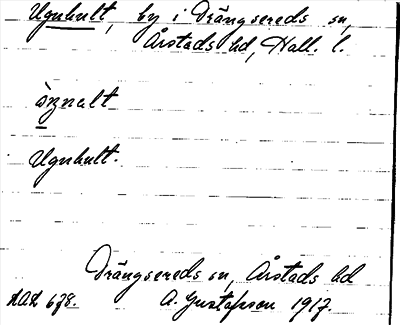 Ugnhult, by i Drängsereds sn,
Årstads hd, Hall. l.
ùṉnalt
Ugnhult.
Drängsereds sn, Årstads hd
LAL 678. A. Gustafsson 1917.